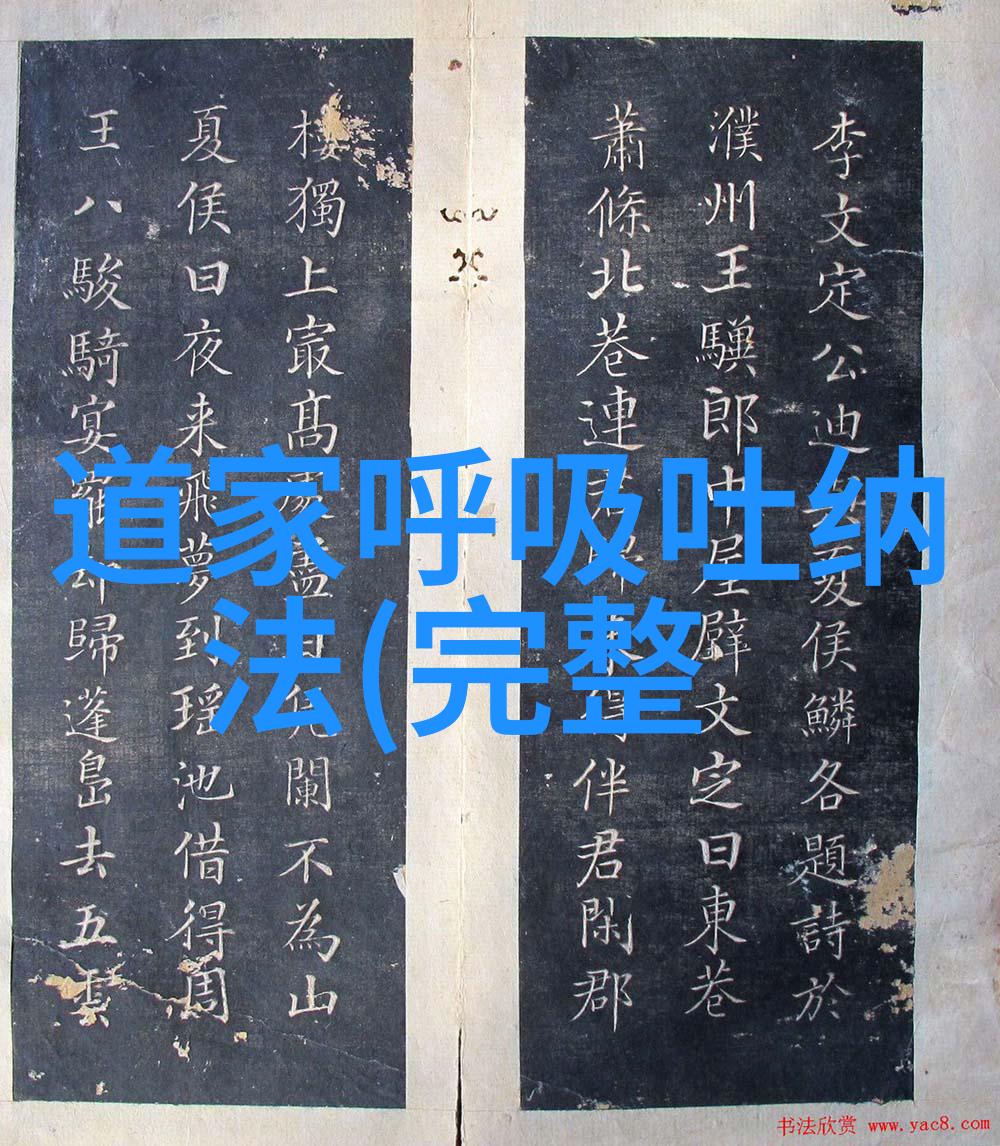 李文定公迪夏侯鱗各題詩於
濮州王驥郎中屋壁文定曰東巷
蕭條北巷連伴君閑郡
樓獨上㝡髙處盡日凭闌不為山
夏侯曰夜来飛夢到瑶池借得周
王八駿騎宴罷却歸蓬島去五雲
道家呼吸吐纳
法(完整
书法欣赏 www.yac8.com